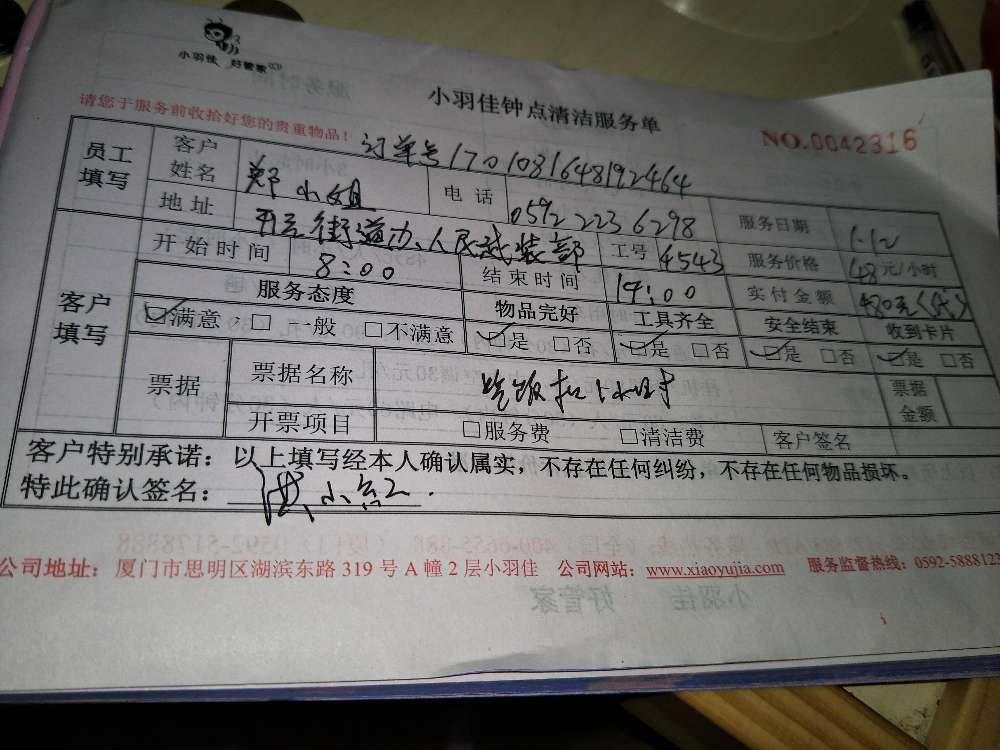 小羽佳 好管家
小羽佳钟点清洁服务单
请您于服务前收拾好您的贵重物品！
NO.0042316
订单号1701081648192464
员工填写 客户姓名 郑小姐 电话 0592 2236298 服务日期 1.12
地址 开元街道办、人民武装部 工号 4543 服务价格 48元/小时
客户填写 开始时间 8:00 结束时间 19:00 实付金额 480元
服务态度 物品完好 工具齐全 安全结束 收到卡片
☑满意 □一般 □不满意 ☑是 □否 ☑是 □否 ☑是 □否 ☑是 □否
票据 票据名称 吃饭扣1小时 票据金额
开票项目 □服务费 □清洁费 客户签名
客户特别承诺：以上填写经本人确认属实，不存在任何纠纷，不存在任何物品损坏。
特此确认签名：洪小红
公司地址：厦门市思明区湖滨东路 319 号 A 幢 2 层小羽佳 公司网站：www.xiaoyujia.com 服务监督热线：0592-5888123